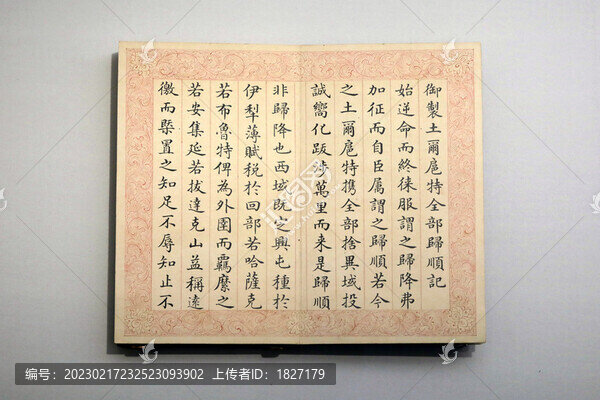 御製土爾扈特全部歸順記
始逆命而終徠服謂之歸降弗
加征而自臣屬謂之歸順若今
之土爾扈特携全部捨異域投
誠嚮化跋涉萬里而来是歸順
非歸降也西域既定興屯種於
伊犁薄賦税於回部若哈薩克
若布魯特俾為外圉而羈縻之
若安集延若拔達克山益稱遠
徼而槩置之知足不辱知止不
编号：20230217232523093902 上传者ID：1827179